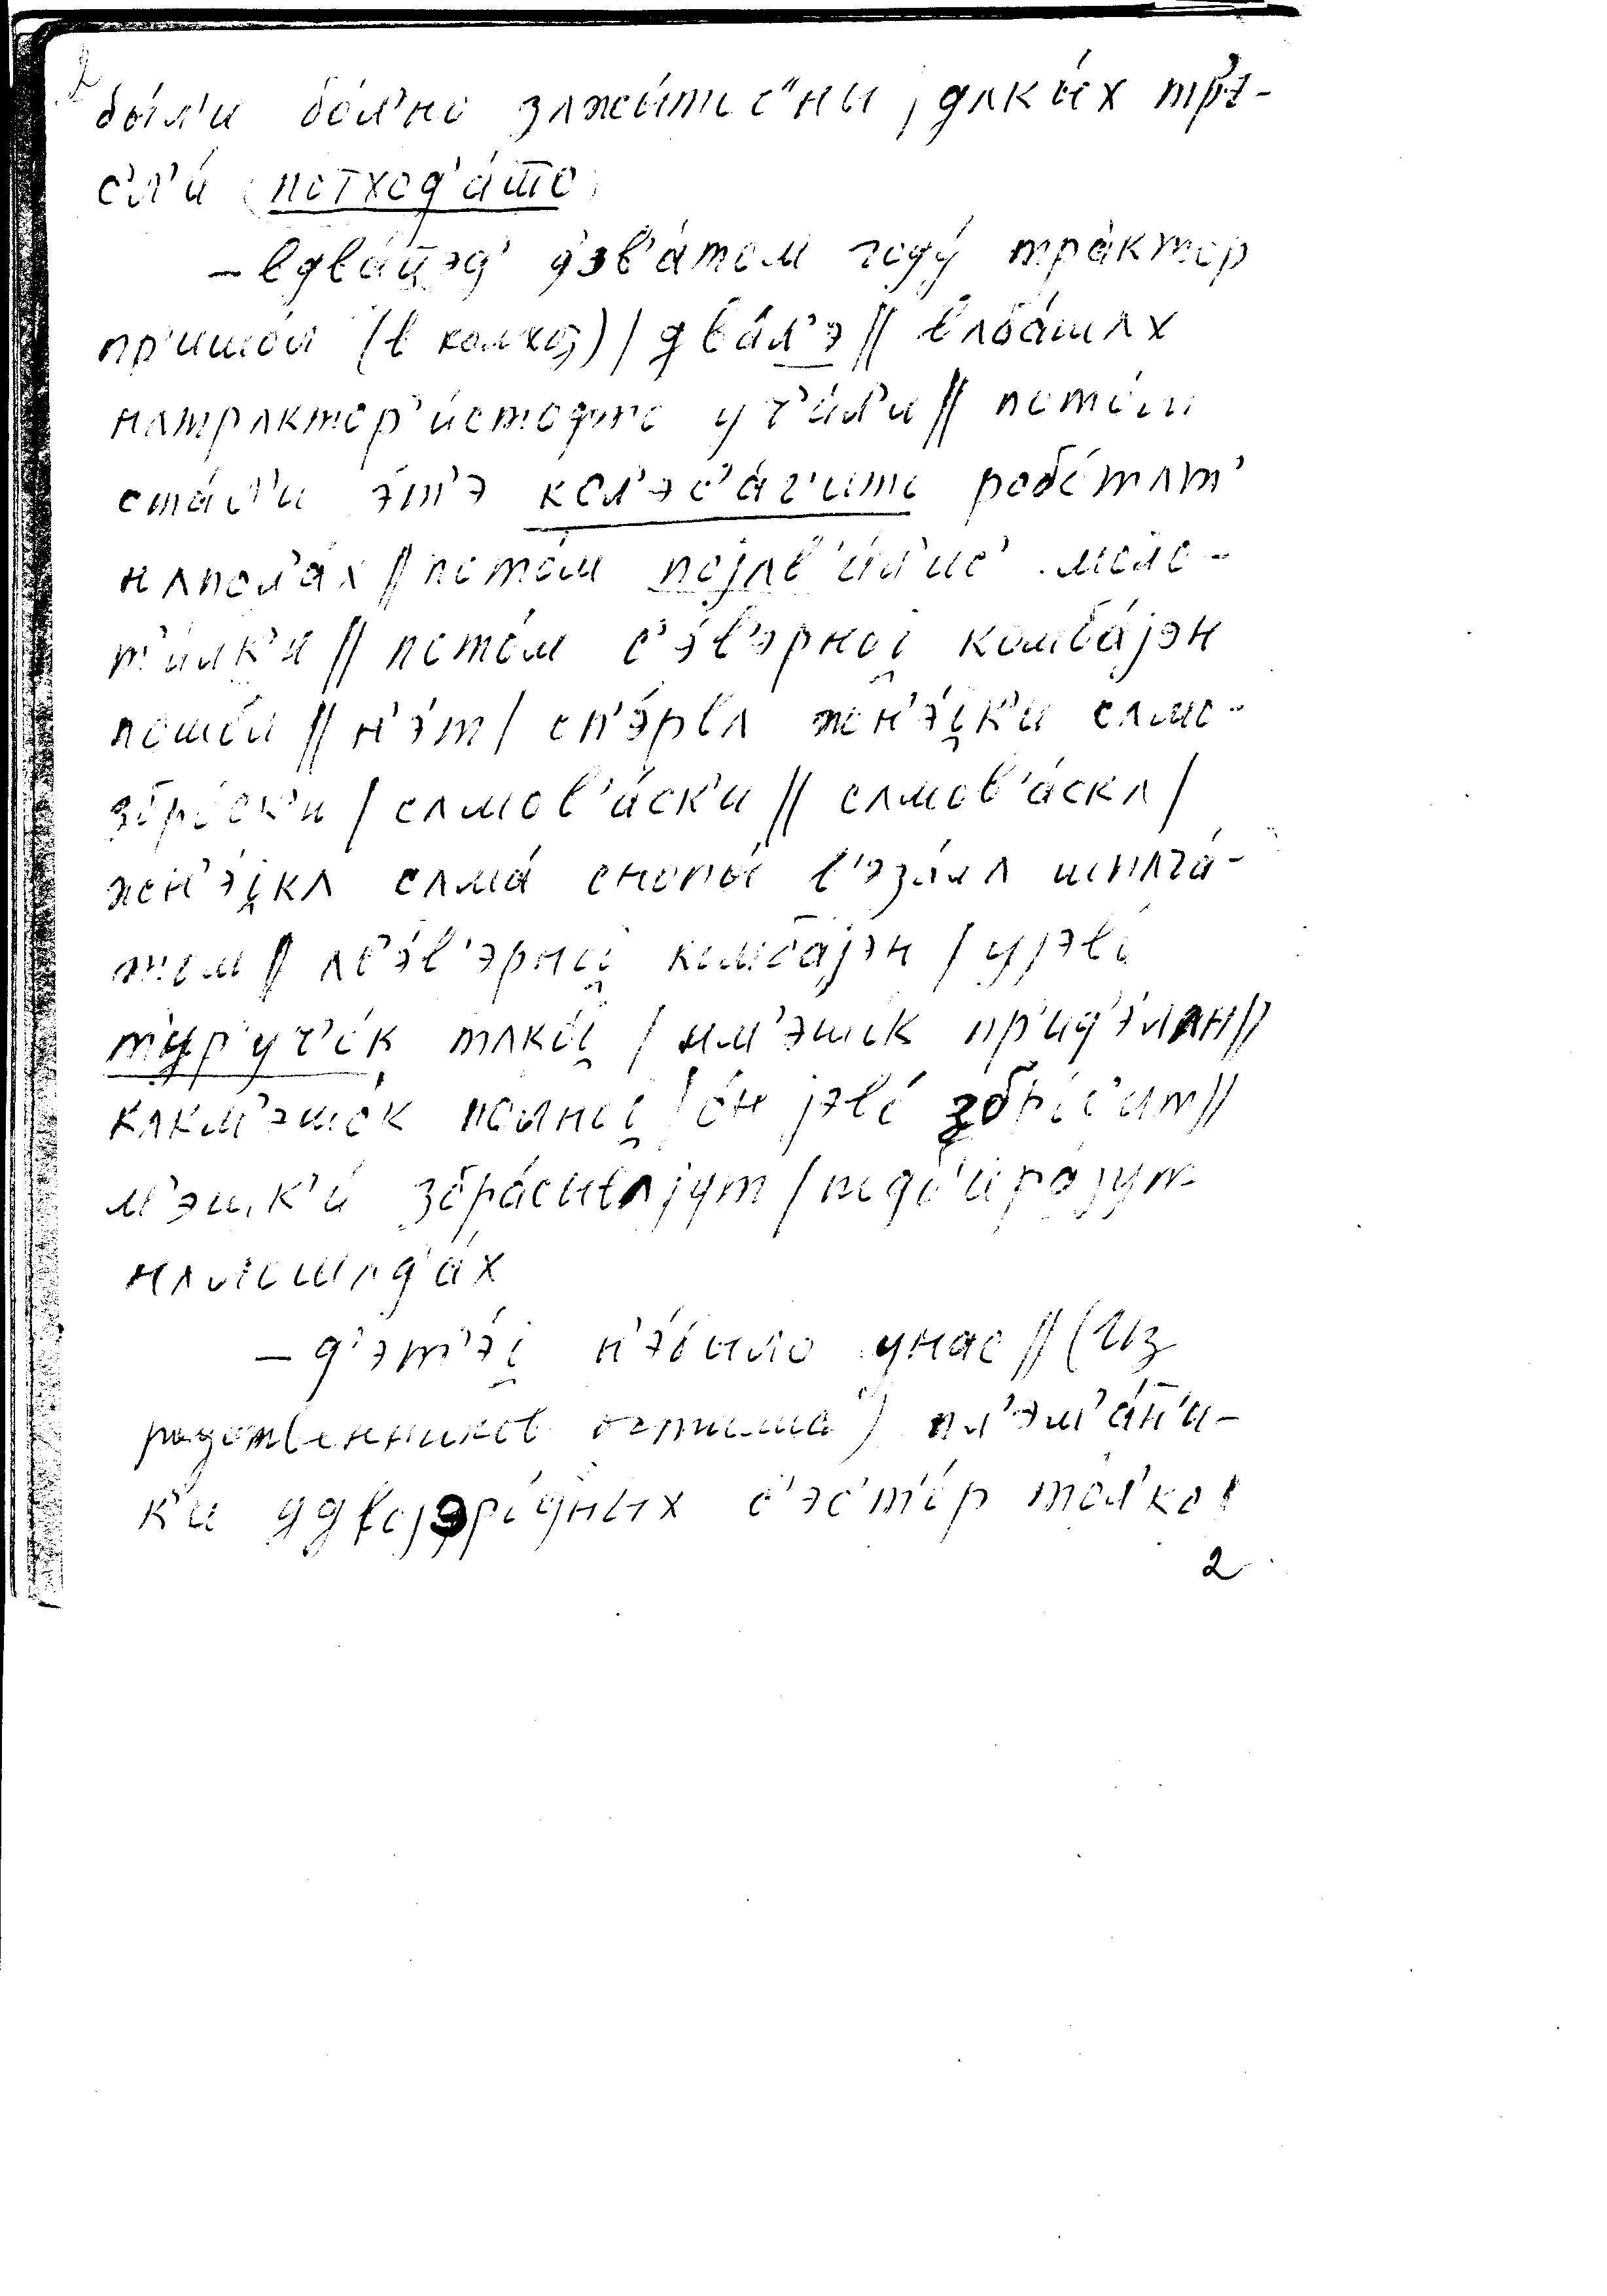 2
бы́л'и бо́л'но зʌжы́тн с"ни, дʌкы́х тр'э-
с'л'и́ потход'а́ш̅о
– вдва́ц̅эд' д'эв'а́том году́ тра́ктор
пр'ишо́л (в колхоз) / два́л'э // влба́шʌх
нʌтрʌктор'и́стоф уч'и́л'и // пото́м
ста́л'и э́т'э кол'эс'а́г'ити робо́тʌт'
нʌпол'а́х // пото́м појʌв'и́л'ис' моло-
т'и́лк'и // пото́м с'э́в'эрној комба́јэн
пошо́л // н'э́т / сп'э́рвʌ жн'э́јк'и сʌмо-
збро́ск'и / сʌмов'а́ск'и // сʌмов'а́скʌ /
жн'э́јкʌ сʌма́ снопы́ в'эза́лʌ шпʌга́-
том // ʌс'э́в'эрној комба́јэн / ујэво́
т'ур'уч'о́к тʌко́ј / им'эшо́к пр'ид'э́лʌн //
кʌкм'эшо́к по́лној / о́н јэво́ збро́с'ит //
м'эшк'и́ збра́сивʌјут / подб'ира́јут
нʌлошʌд'а́х
– д'эт'э́ј н'э́было унас // (Из
родственников остались?) пл'эм'а́н̅'и-
к'и удвојэро́дных с'эс'т'о́р то́л'ко /
2